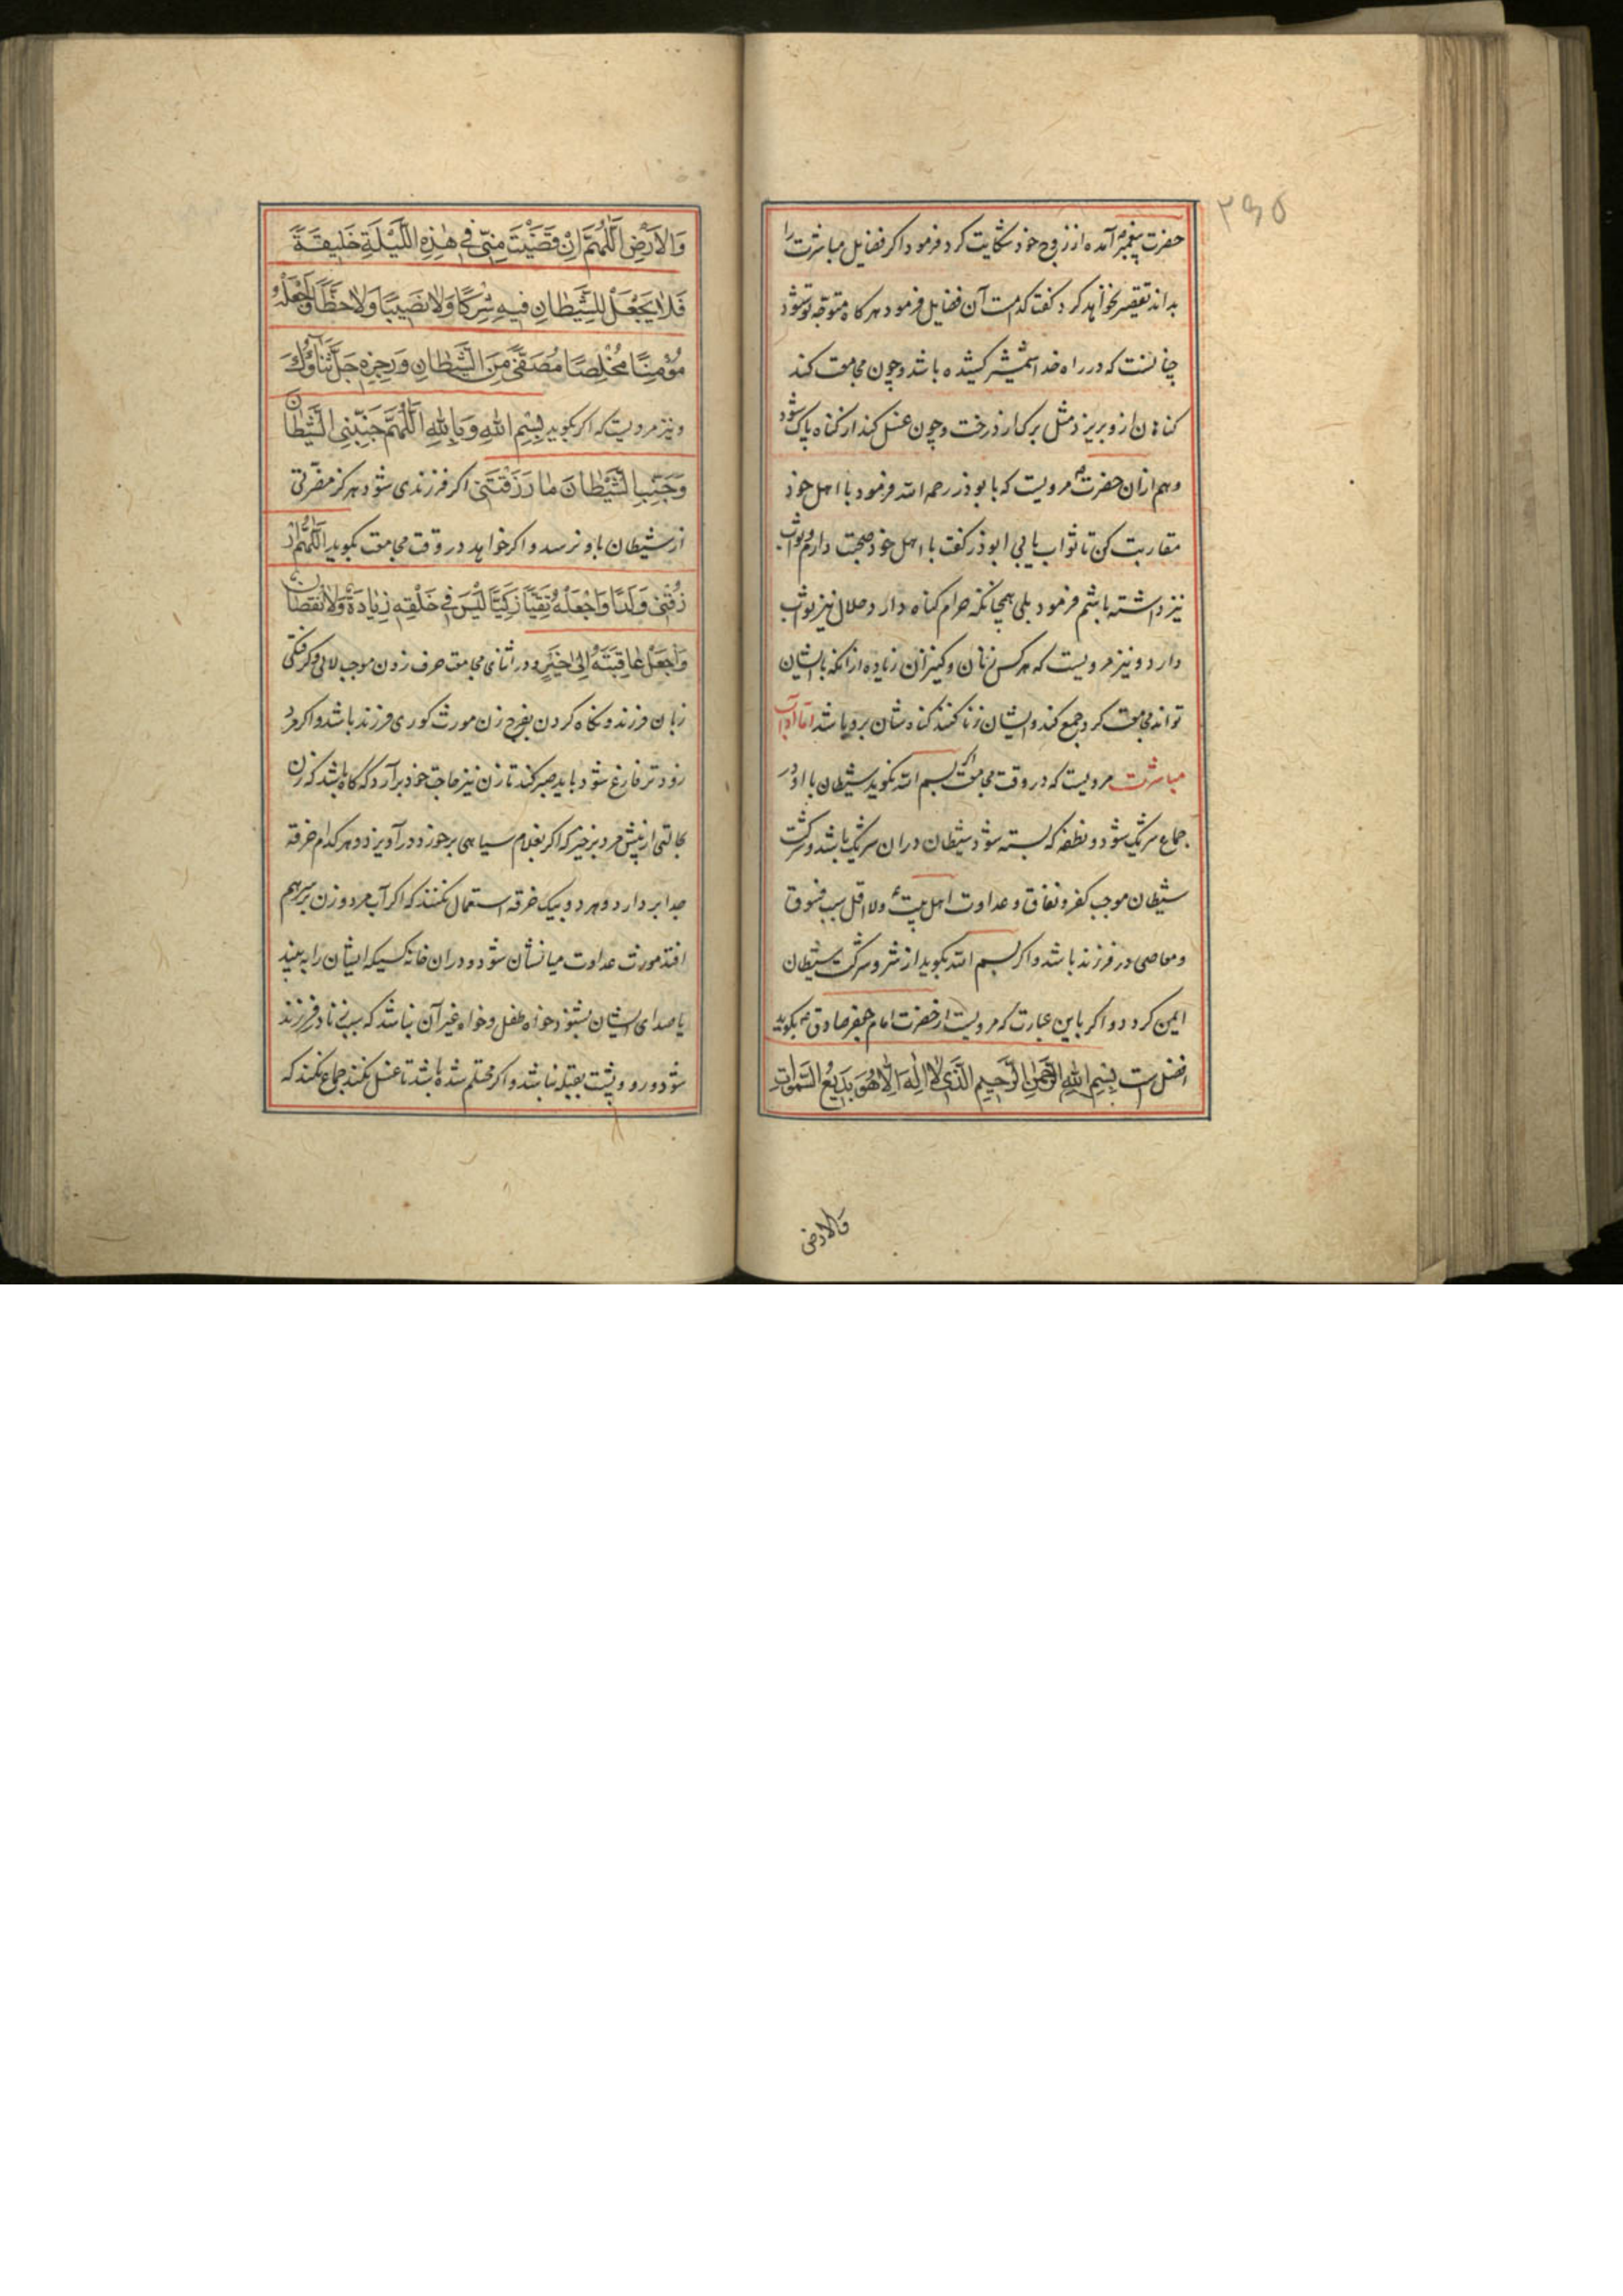 ۲۹۵
حضرت پیغمبر آمده از زوج خود شکایت کرد فرمود اکر فضایل مباشرت را
بداند تقصیر نخواهد کرد گفت کدامست آن فضایل فرمود هرکاه متوجه تو شود
چنانست که در راه خدا شمشیر کشیده باشد و چون مجامعت کند
کناهان ازو بریزد مثل برک از درخت و چون غسل کند از کناه پاک شود
و هم ازان حضرت مرویست که بابوذر رحمه الله فرمود با اهل خود
مقاربت کن تا ثواب یابی ابوذر کفت با اهل خود صحبت دارم و ثواب
نیز داشته باشم فرمود بلی همچنانکه حرام کناه دارد حلال نیز ثواب
دارد و نیز مرویست که هرکس زنان و کنیزان زیاده از انکه با ایشان
تواند مجامعت کرد جمع کند و ایشان زنا کنند کناه شان برو باشد اما آداب
مباشرت مرویست که در وقت مجامعت اکر بسم الله نکوید شیطان با او در
جماع شریک شود و نطفه که بسته شود شیطان دران شریک باشد و شرکت
شیطان موجب کفر و نفاق و عداوت اهل بیت و لا اقل سبب فسوق
و معاصی در فرزند باشد و اکر بسم الله بکوید از شر و شرکت شیطان
ایمن کردد و اکر باین عبارت که مرویست از حضرت امام جعفر صادق بکوید
افضل است بِسْمِ اللهِ الرَّحْمٰنِ الرَّحِيمِ الَّذِي لَا إِلٰهَ إِلَّا هُوَ بَدِيعُ السَّمٰوَاتِ
والارض
وَالْاَرْضِ اَللّٰهُمَّ اِنْ قَضَيْتَ مِنِّي فِي هٰذِهِ اللَّيْلَةِ خَلِيفَةً
فَلَا يَجْعَلْ لِلشَّيْطَانِ فِيهِ شِرْكًا وَلَا نَصِيبًا وَلَا حَظًّا وَاجْعَلْهُ
مُؤْمِنًا مُخْلِصًا مُصَفًّى مِنَ الشَّيْطَانِ وَرِجْزِهِ جَلَّ ثَنَاؤُكَ
و نیز مرویست که اکر بکوید بِسْمِ اللهِ وَبِاللهِ اَللّٰهُمَّ جَنِّبْنِي الشَّيْطَانَ
وَجَنِّبِ الشَّيْطَانَ مَا رَزَقْتَنِي اکر فرزندی شود هرکز مضرتی
از شیطان باو نرسد و اکر خواهد در وقت مجامعت بکوید اَللّٰهُمَّ ارْ
زُقْنِي وَلَدًا وَاجْعَلْهُ تَقِيًّا زَكِيًّا لَيْسَ فِي خَلْقِهِ زِيَادَةٌ وَلَا نُقْصَانٌ
وَاجْعَلْ عَاقِبَتَهُ اِلَى خَيْرٍ و در اثنای مجامعت حرف زدن موجب لالی و کرفتکی
زبان فرزند و نکاه کردن بفرج زن مورث کوری فرزند باشد و اکر مرد
زودتر فارغ شود باید صبر کند تا زن نیز حاجت خود برآرد که کاه باشد که زن
بحالتی از پیش مرد برخیزد که اکر بغلام سیاهی برخورد درآویزد و هرکدام خرقه
جدا بردارد و هر دو بیک خرقه استعمال نکنند که اکر آب مرد و زن بر سر هم
افتد مورث عداوت میانشان شود و دران خانه کسیکه ایشان را به بیند
یا صدای ایشان بشنود خواه طفل و خواه غیر آن نباشد که سبب زنا در فرزند
شود و رو و پشت بقبله نباشد و اکر محتلم شده باشد تا غسل نکند جماع نکند که